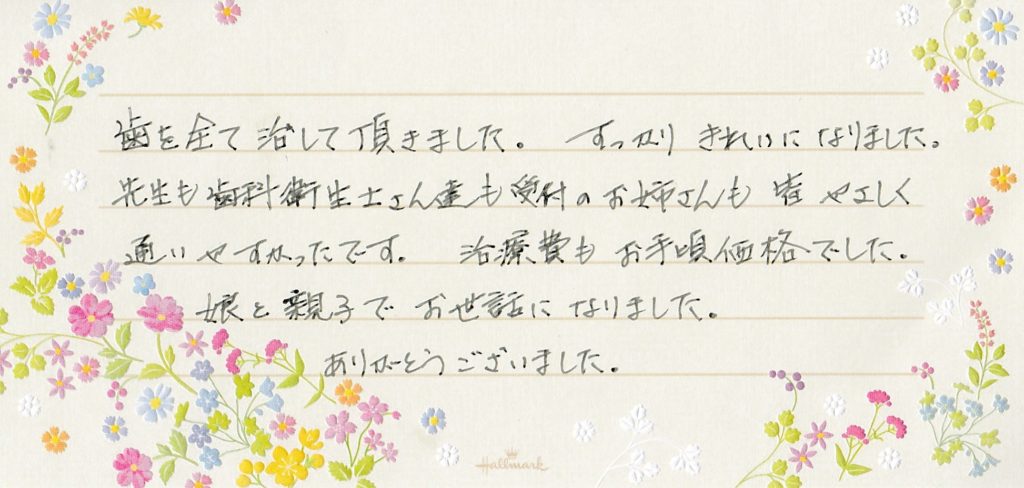 歯を全て治して頂きました。 すっかり きれいに なりました。
先生も歯科衛生士さん達も受付のお姉さんも 皆 やさしく
通いやすかったです。 治療費も お手頃価格でした。
娘と親子で お世話に なりました。
ありがとうございました。
Hallmark